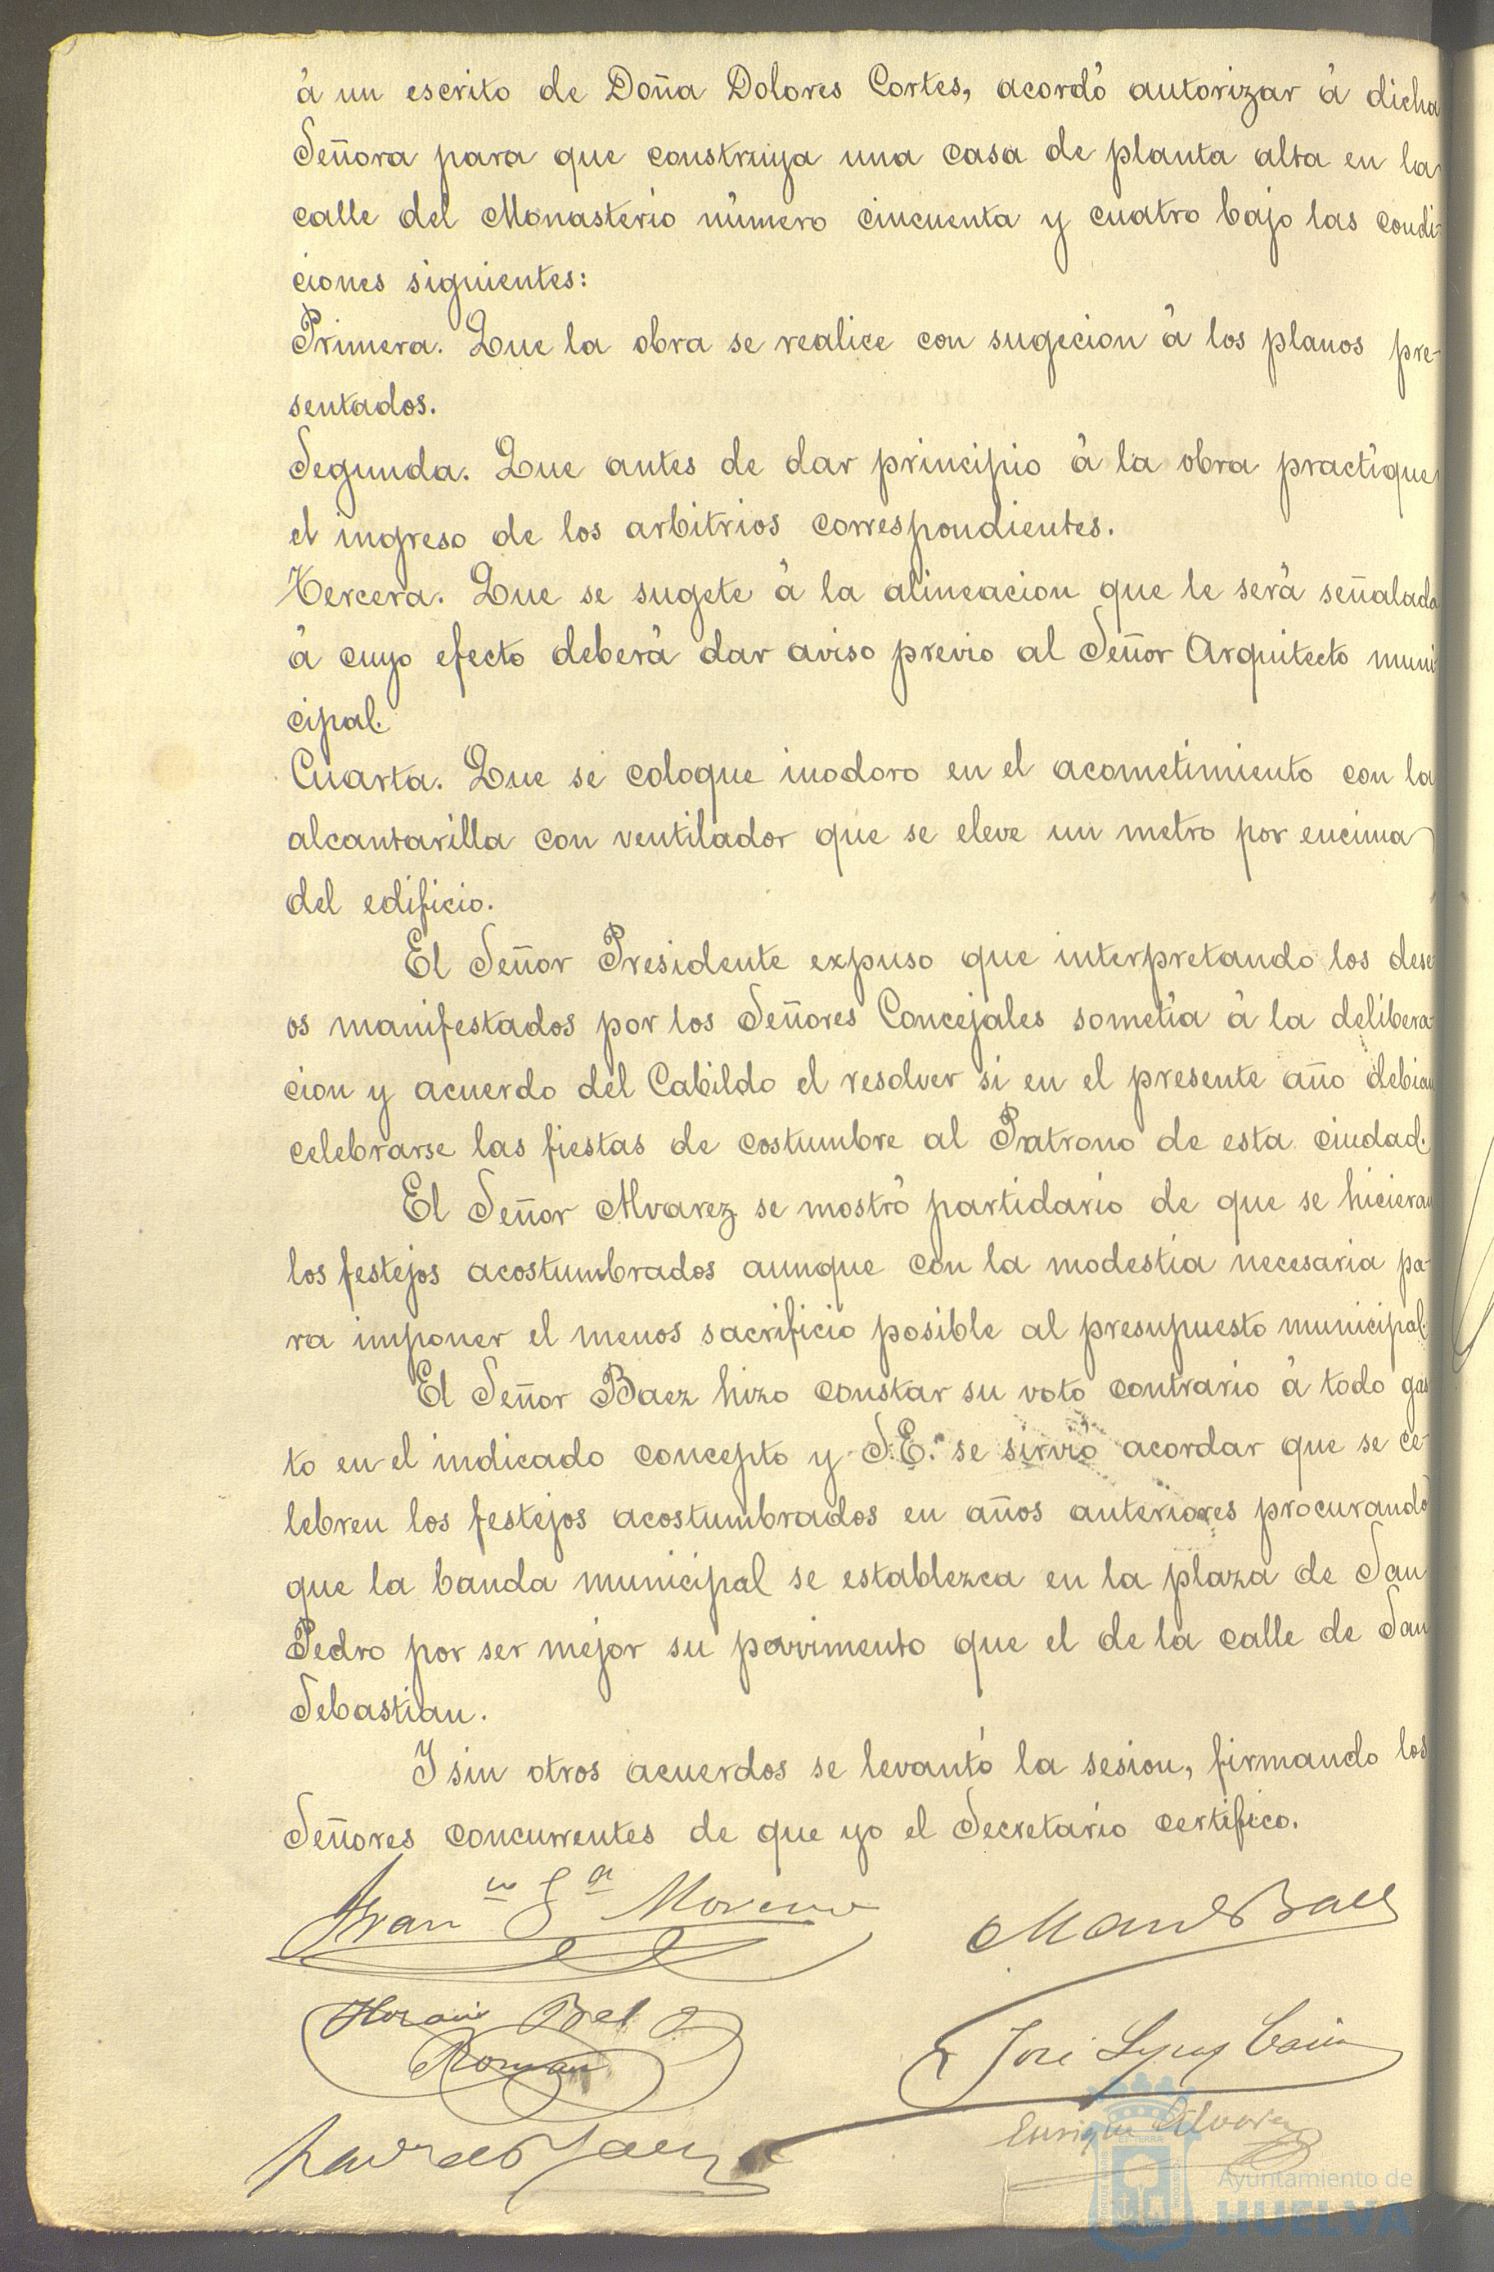 á un escrito de Doña Dolores Cortes, acordó autorizar á dicha
Señora para que construya una casa de planta alta en la
calle del Monasterio número cincuenta y cuatro bajo las condi-
ciones siguientes:
Primera. Que la obra se realice con sugecion á los planos pre-
sentados.
Segunda. Que antes de dar principio á la obra practique
el ingreso de los arbitrios correspondientes.
Tercera. Que se sugete á la alineacion que le será señalada
á cuyo efecto deberá dar aviso previo al Señor Arquitecto muni
cipal.
Cuarta. Que se coloque inodoro en el acometimiento con la
alcantarilla con ventilador que se eleve un metro por encima
del edificio.
El Señor Presidente expuso que interpretando los dese
os manifestados por los Señores Concejales sometia á la delibera-
cion y acuerdo del Cabildo el resolver si en el presente año debian
celebrarse las fiestas de costumbre al Patrono de esta ciudad.
El Señor Alvarez se mostró partidario de que se hicieran
los festejos acostumbrados aunque con la modestia necesaria pa-
ra imponer el menos sacrificio posible al presupuesto municipal.
El Señor Baez hizo constar su voto contrario á todo gas
to en el indicado concepto y S.E. se sirvió acordar que se ce-
lebren los festejos acostumbrados en años anteriores procurando
que la banda municipal se establezca en la plaza de San
Pedro por ser mejor su pavimento que el de la calle de San
Sebastian.
Y sin otros acuerdos se levantó la sesion, firmando los
Señores concurrentes de que yo el Secretario certifico.
Fran.co G.a Moreno
Man.l Baez
Horacio Bel
Roman
José
Enrique Alvarez
Ayuntamiento de
HUELVA